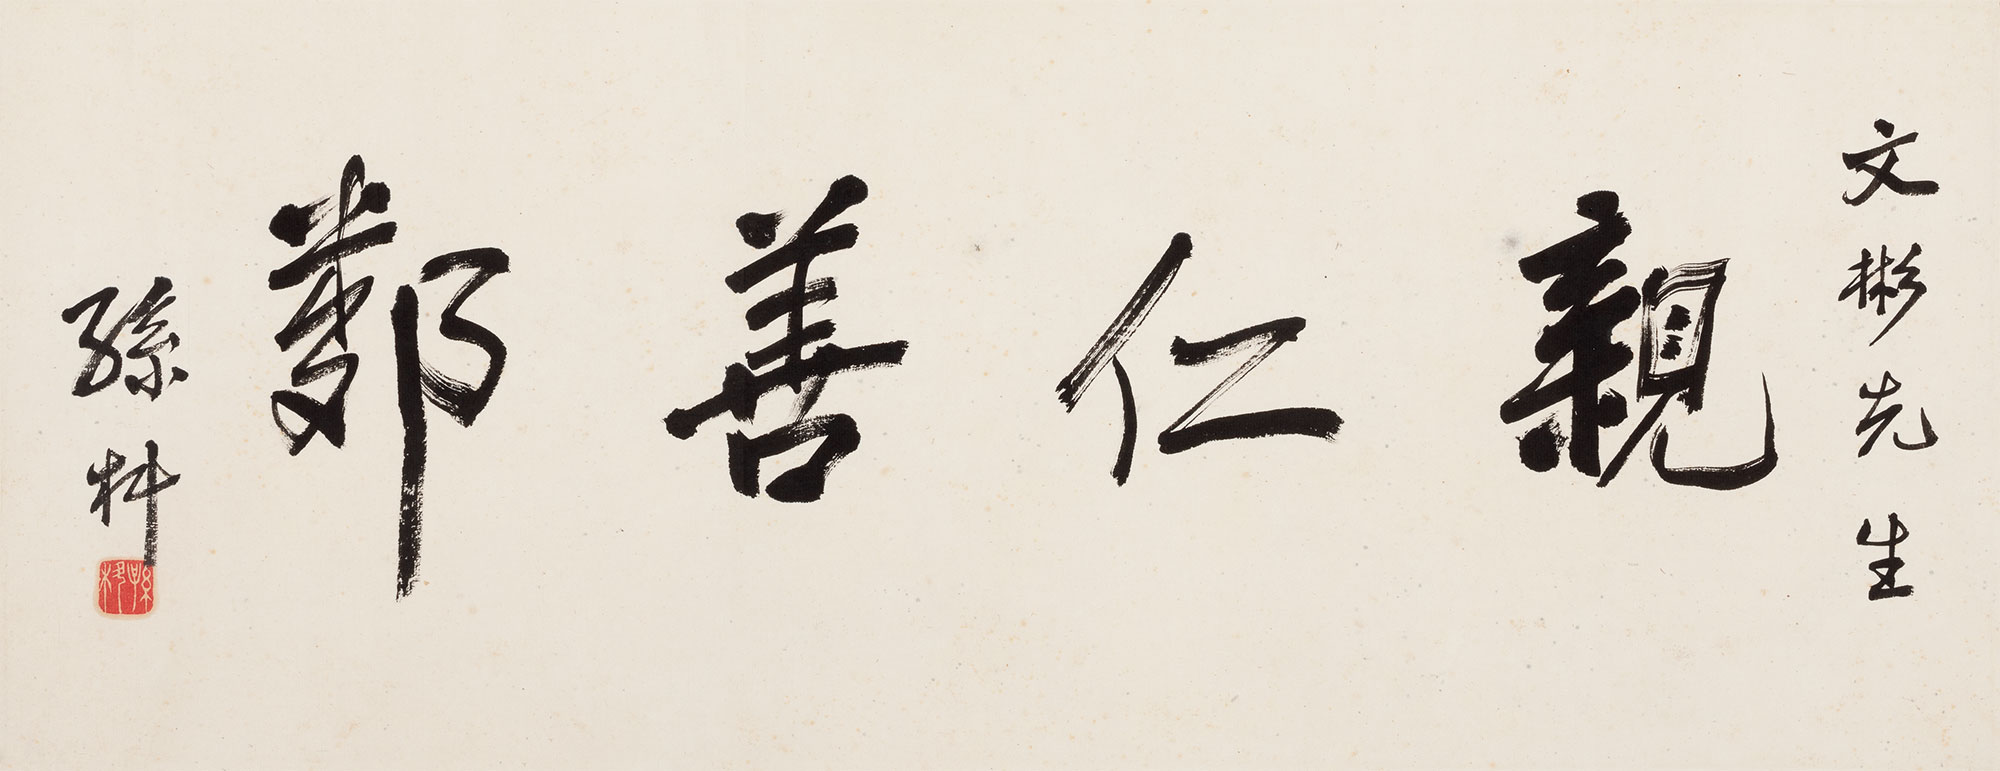 文彬先生
親仁善鄰
孫科